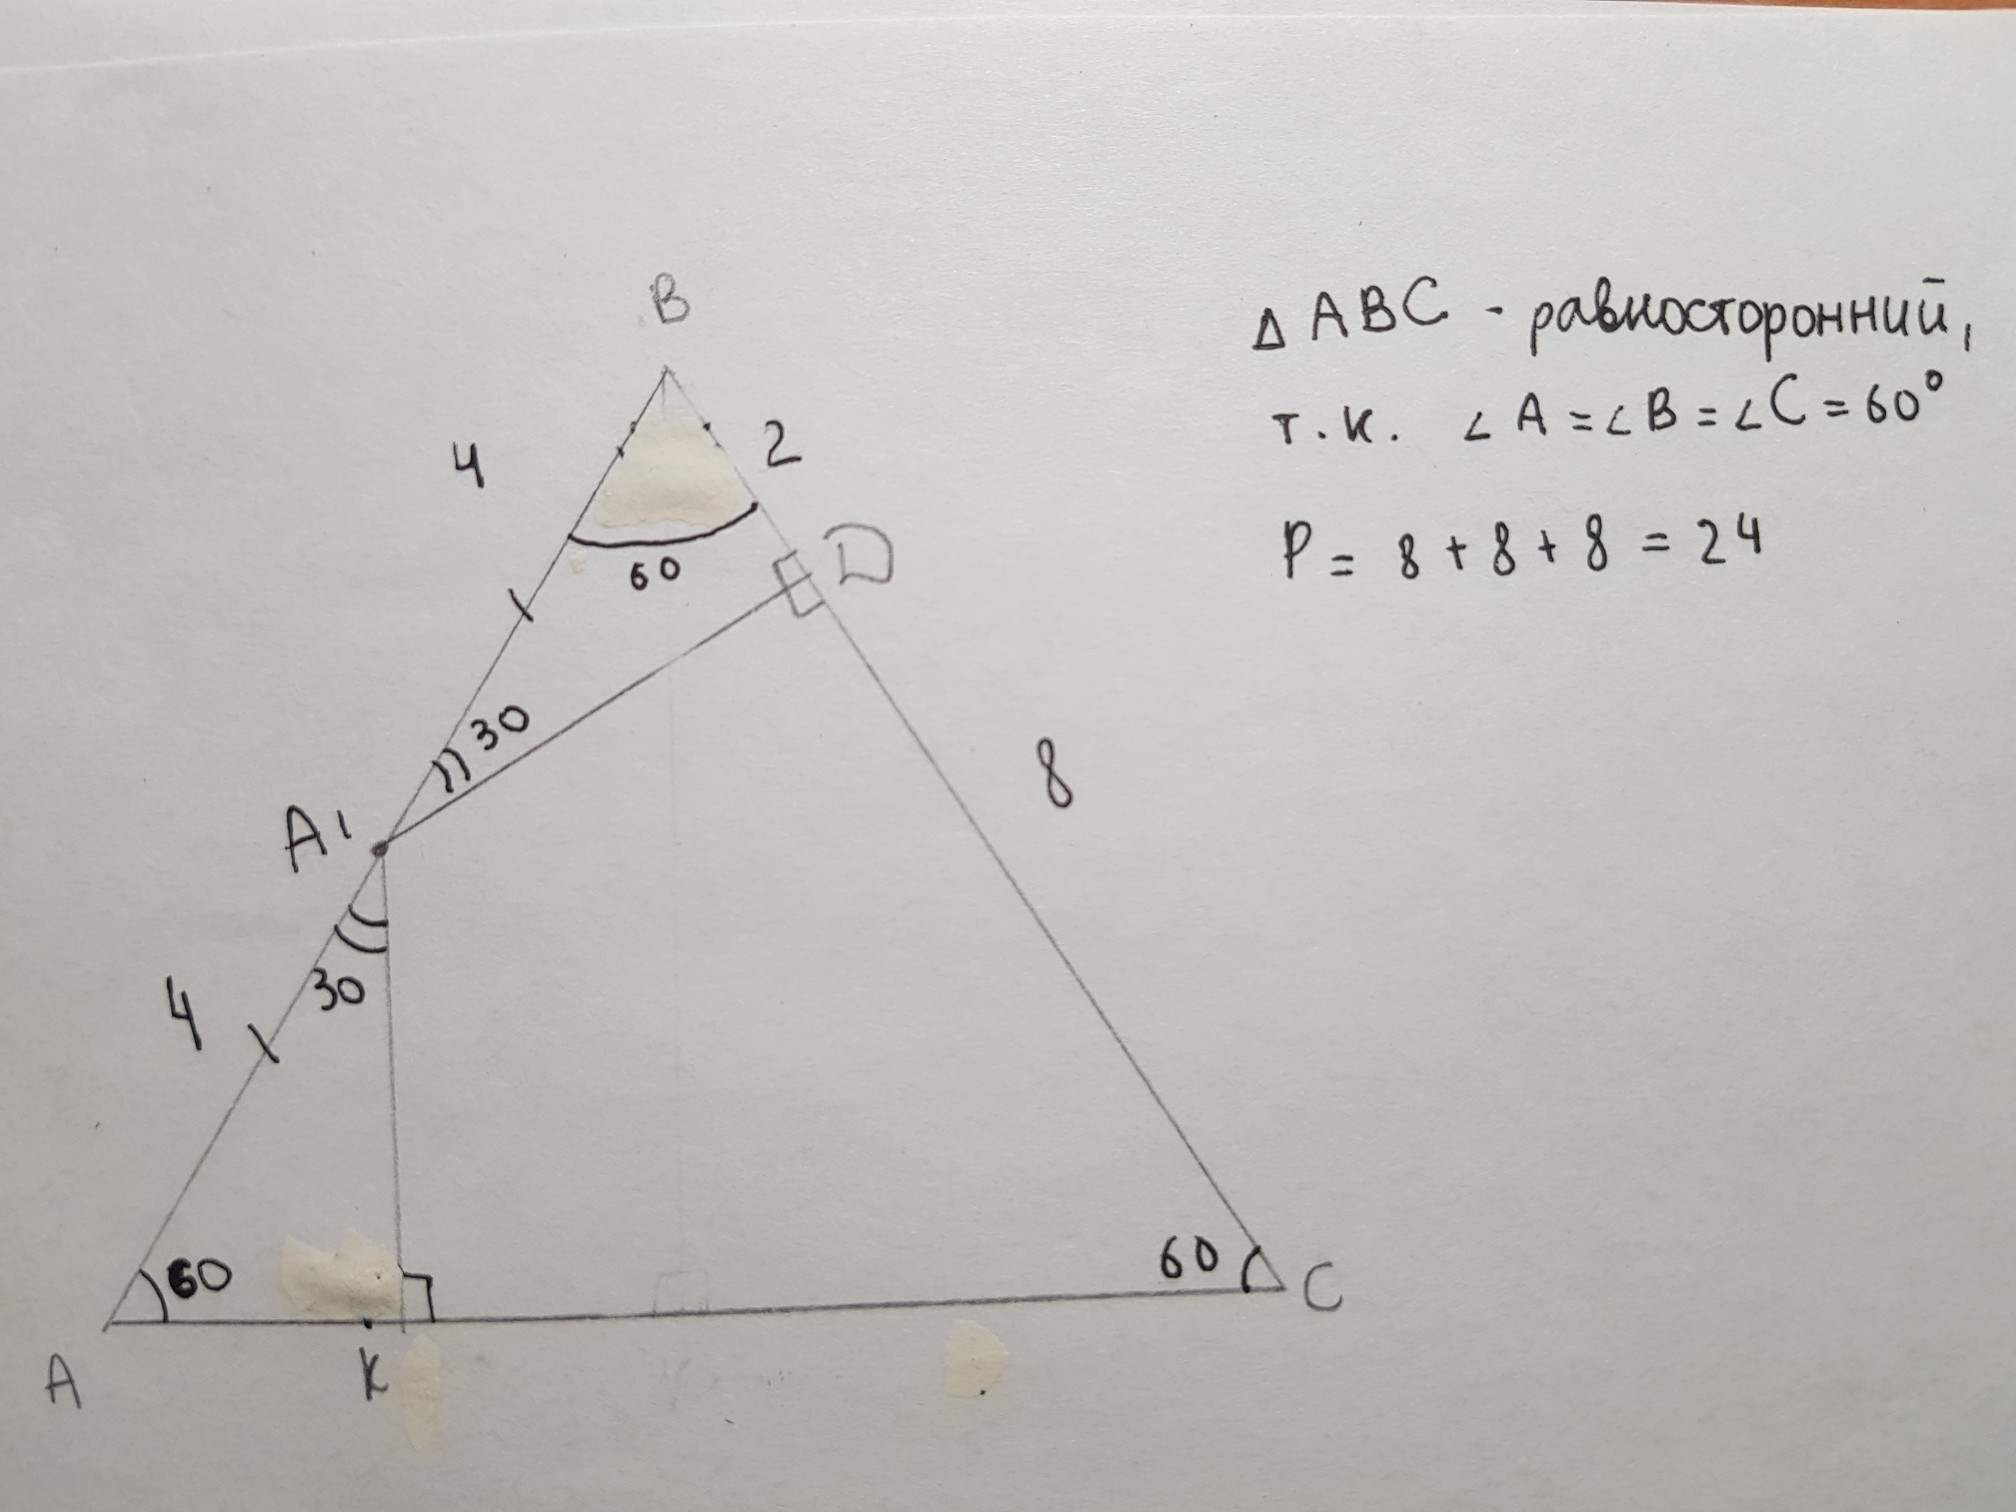 B
Δ ABC - равносторонний,
т.к. ∠A=∠B=∠C=60°
4
2
P= 8+8+8 = 24
60
D
30
8
A1
30
4
60
60
C
A
K